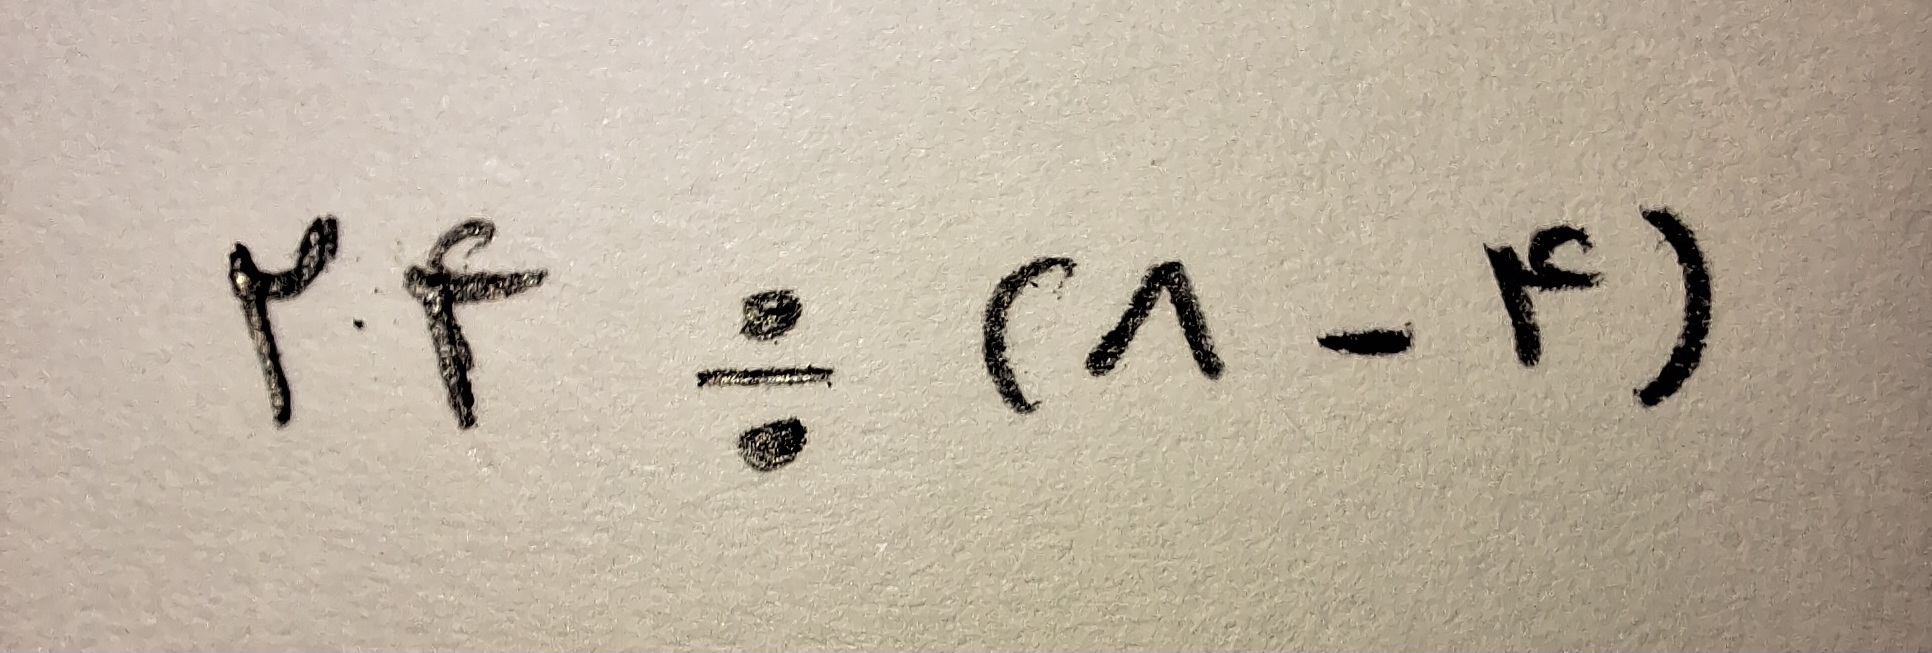 ۲۰۴ ÷ (۸ - ۴)